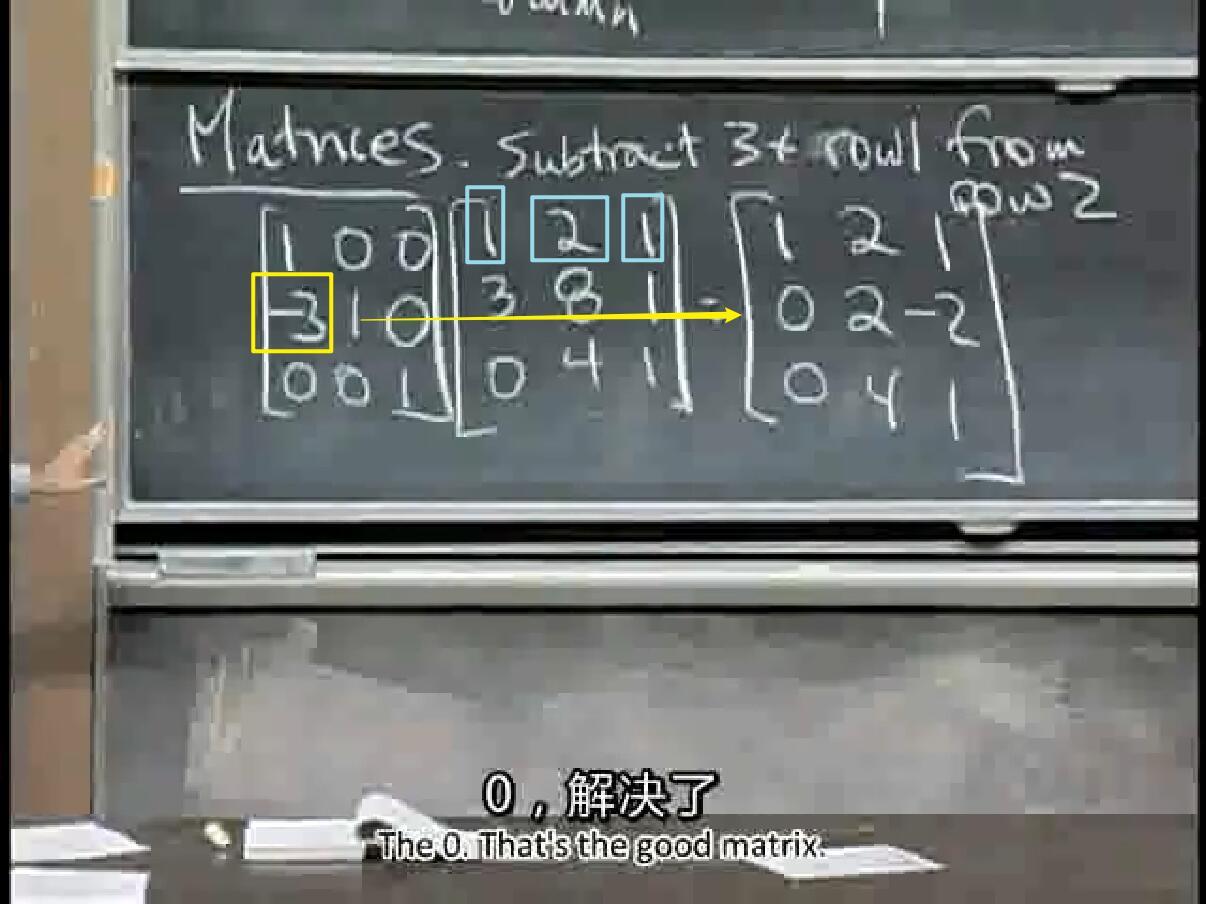 Matrices. Subtract 3x row1 from
row 2
1 0 0 1 2 1 1 2 1
-3 1 0 3 8 1 = 0 2 -2
0 0 1 0 4 1 0 4 1
0，解决了
The 0. That's the good matrix.